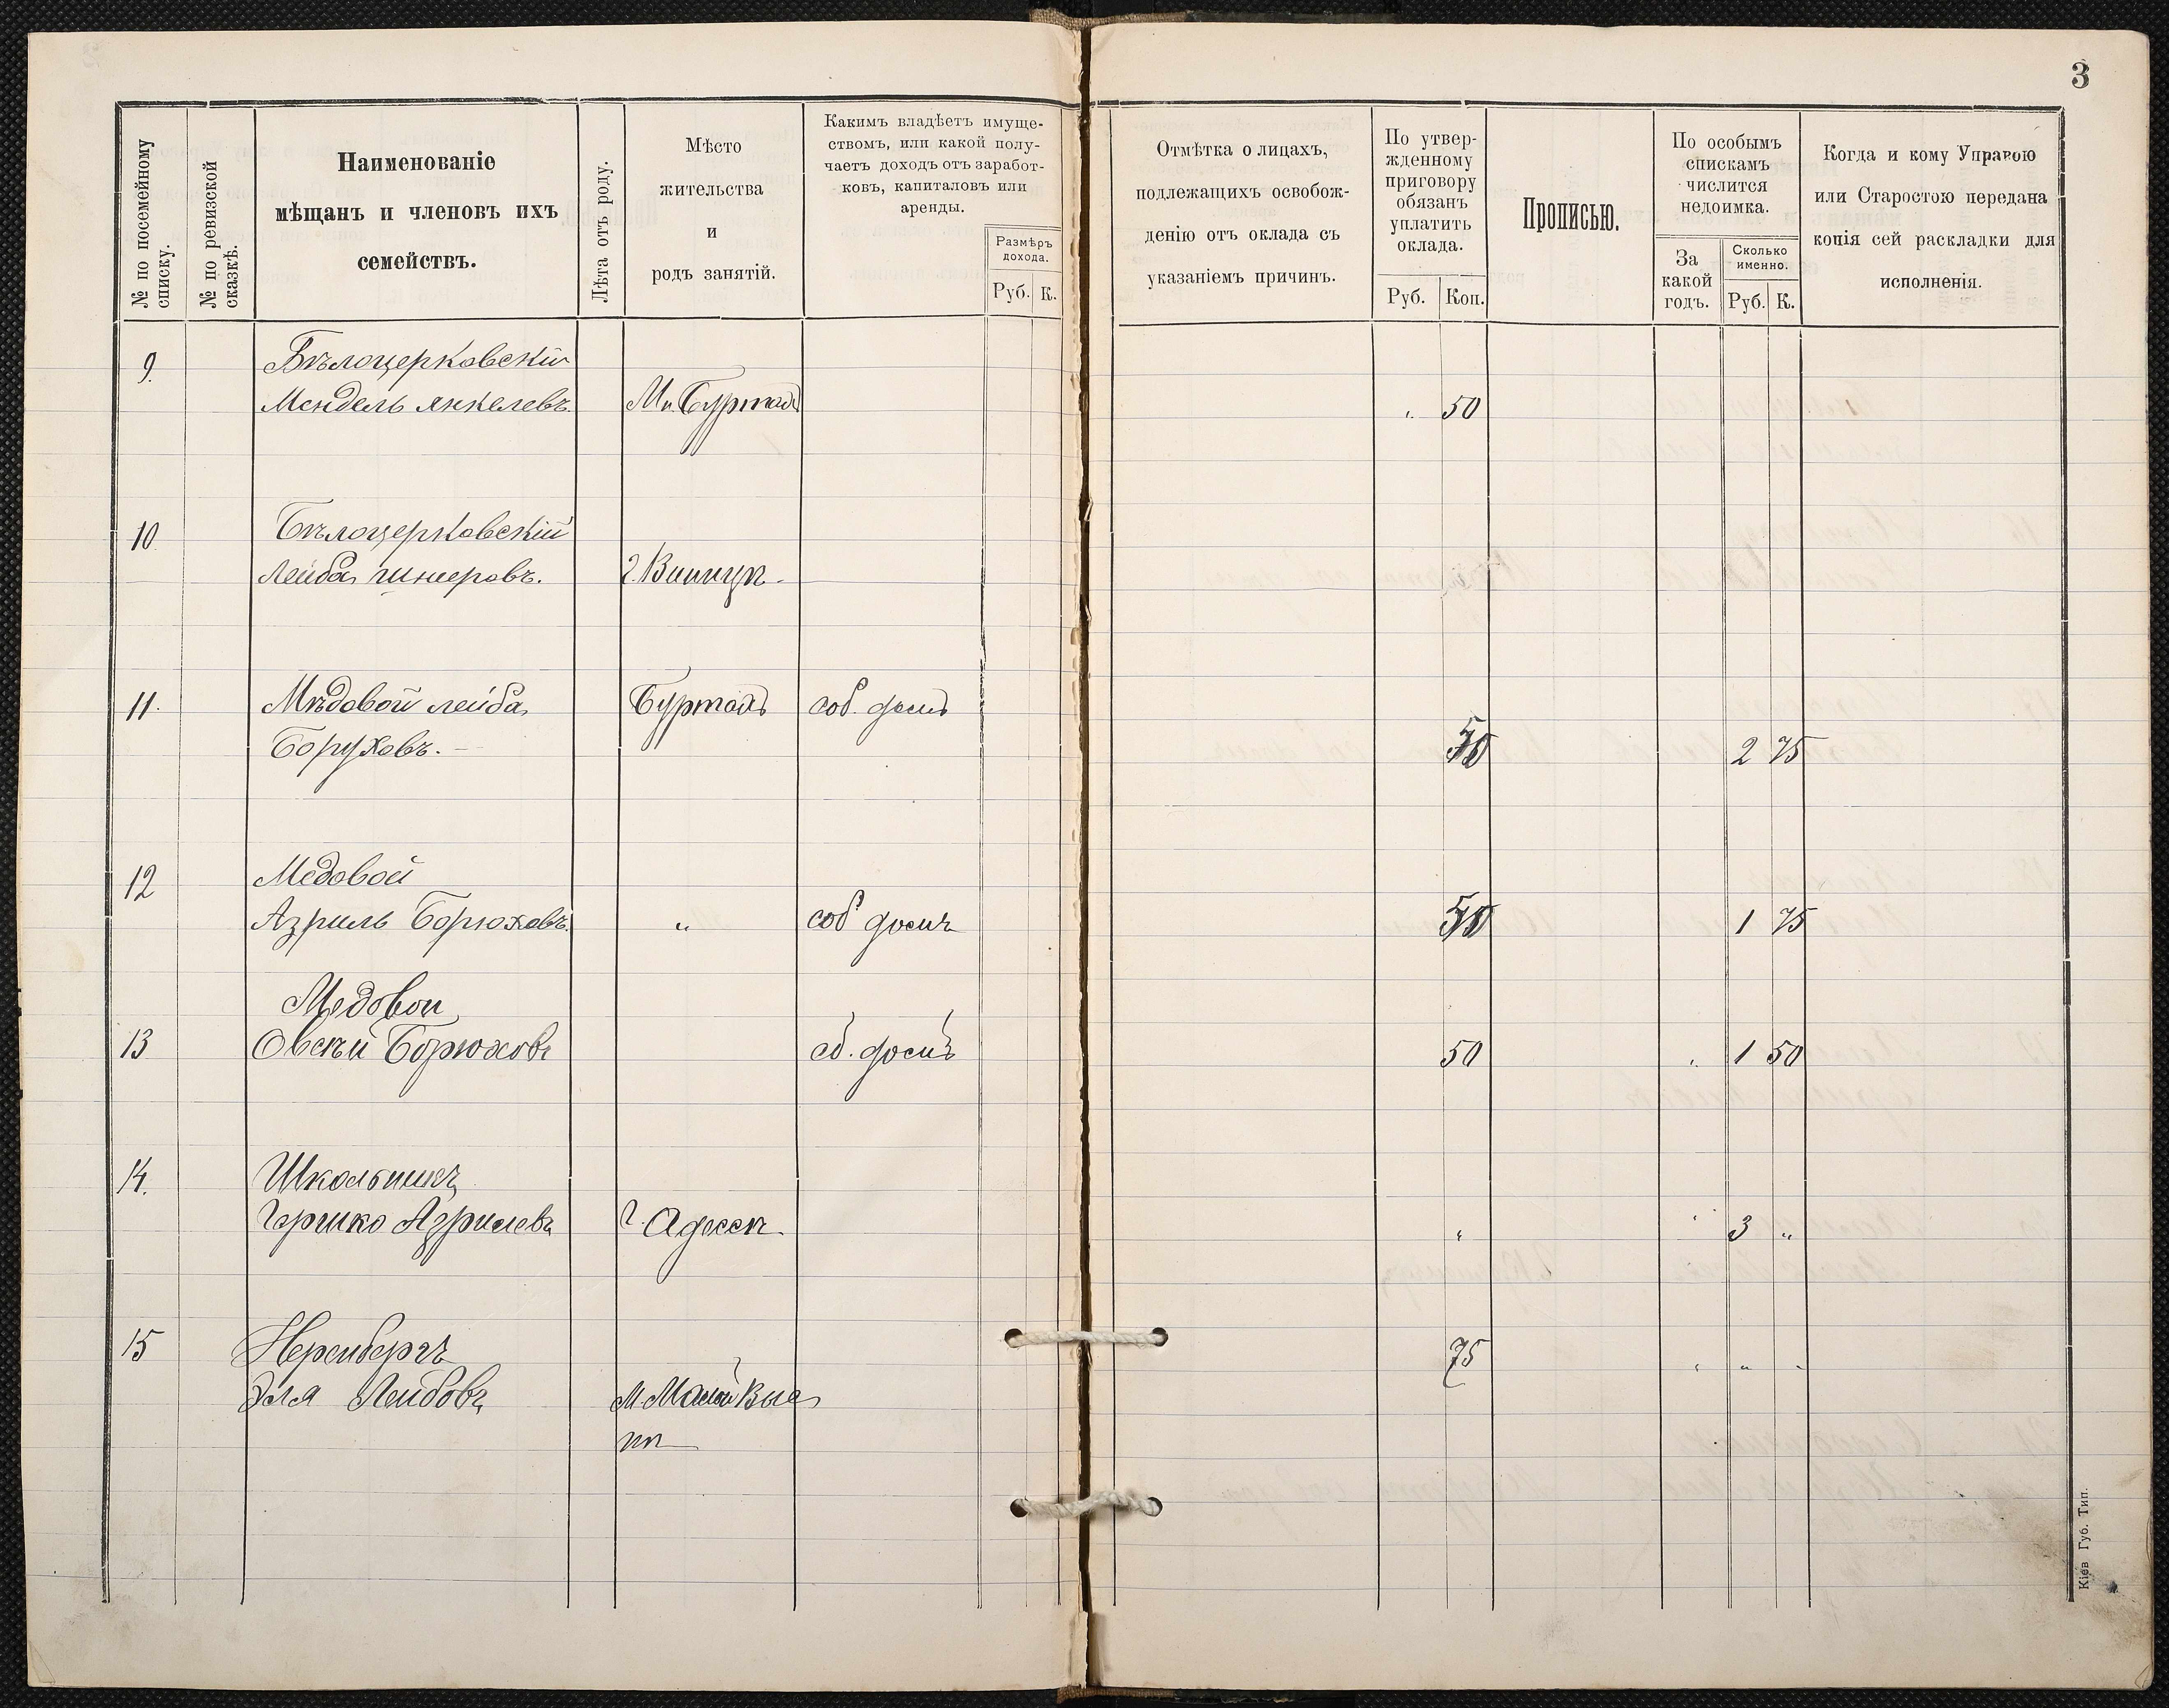 3
№ по посемейному списку.
№ по ревизской сказкѣ.
Наименованіе
мѣщанъ и членовъ ихъ
семействъ.
Лѣта отъ роду.
Мѣсто
жительства
и
родъ занятій.
Какимъ владѣетъ имуще-
ствомъ, или какой полу-
чаетъ доходъ отъ заработ-
ковъ, капиталовъ или
аренды.
Размѣръ
дохода.
Руб. К.
Отмѣтка о лицахъ,
подлежащихъ освобож-
денію отъ оклада съ
указаніемъ причинъ.
По утвер-
жденному
приговору
обязанъ
уплатить
оклада.
Руб. Коп.
Прописью.
По особымъ
спискамъ
числится
недоимка.
За
какой
годъ.
Сколько
именно.
Руб. К.
Когда и кому Управою
или Старостою передана
копія сей раскладки для
исполненія.
9. Бѣлоцерковскій
Мендель Янкелевъ. " 50
10 Бѣлоцерковскій
Лейба
11. Мѣдовой Лейба соб. домъ
Боруховъ. 50 2 75
12 Медовой
Азриль Борюховъ. " соб домъ 50 1 75
Медовой
13 Овсѣй Борюховъ со. домъ 50 " 1 50
14. Школьникъ
Гершко Азрилевъ г. Адесѣ " " 3 "
15 Неренбергъ 75 " " "
Эля Лейбовъ М. Малой Вис
кѣ
Кіев Губ. Тип.